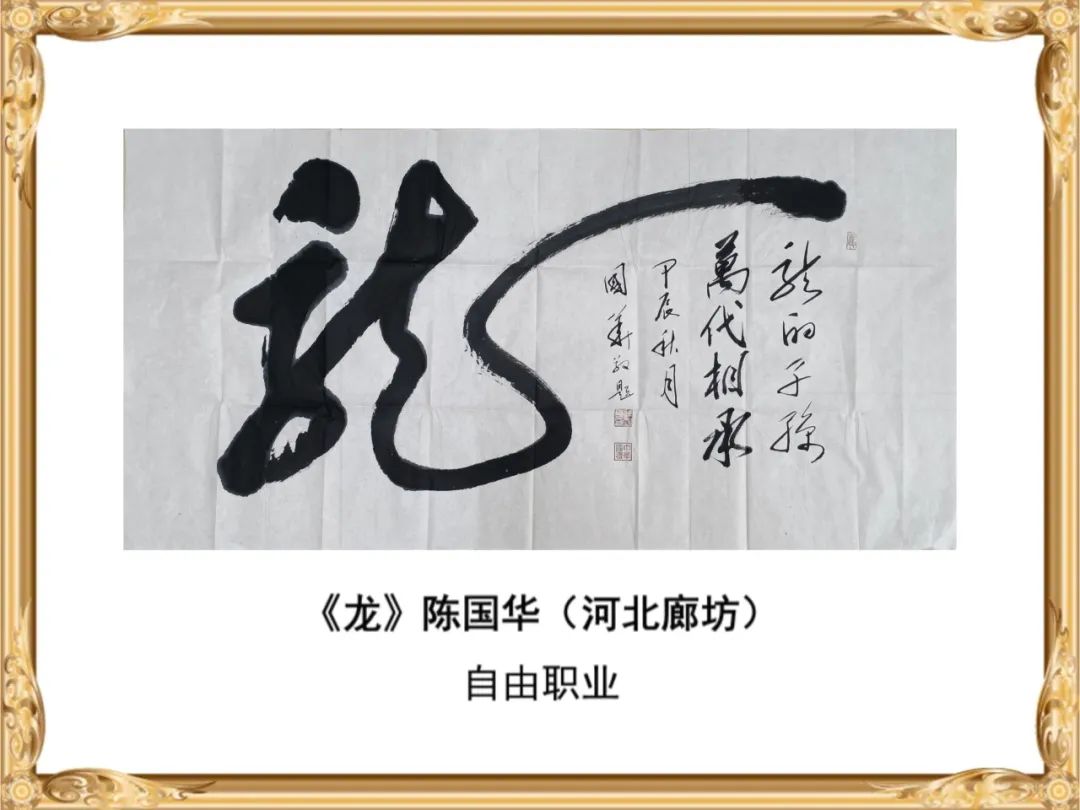 龍
龍的子孫
萬代相承
甲辰秋月
國華敬題
《龙》陈国华（河北廊坊）
自由职业